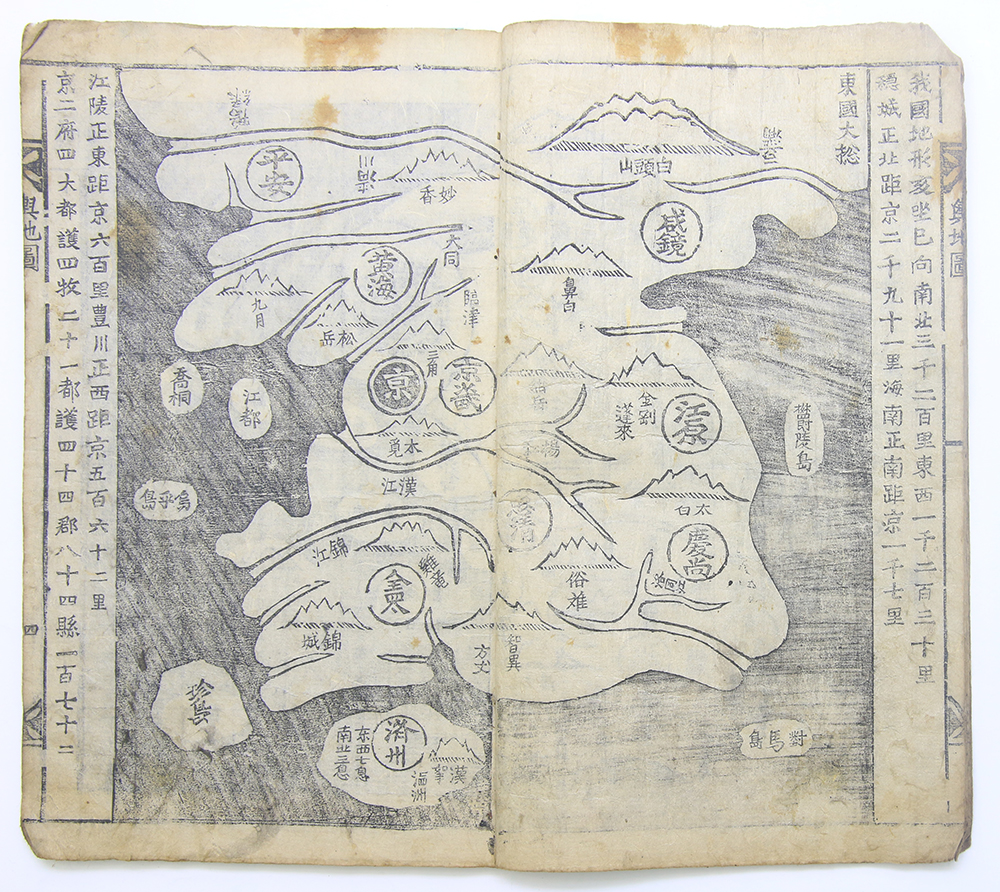 我國地形亥坐巳向南北三千二百里東西一千二百三十里
穩城正北距京二千九十一里海南正南距京一千七里
東國大総
白頭山
咸鏡
鼻白
金剛
蓬來
江原
欝陵島
太白
慶尚
俗離
智異
方丈
對馬島
平安
妙香
大同
黃海
九月
松岳
臨津
三角
京
京畿
木覓
漢江
喬桐
江都
錦江
雞龍
全羅
錦城
珍島
濟州
东西七息
南北三息
漢拏
瀛洲
江陵正東距京六百里豊川正西距京五百六十二里
京二府四大都護四牧二十一都護四十四郡八十四縣一百七十二
輿地圖
四
輿地圖